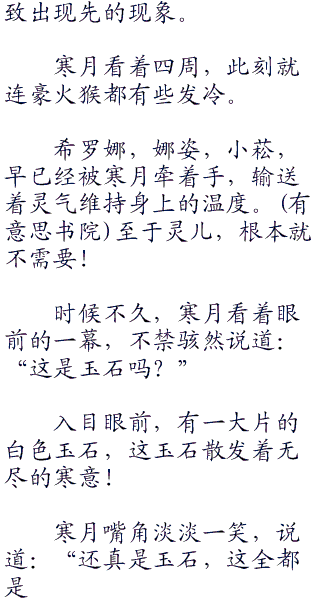 致出现先的现象。
寒月看着四周，此刻就
连豪火猴都有些发冷。
希罗娜，娜姿，小菘，
早已经被寒月牵着手，输送
着灵气维持身上的温度。(有
意思书院)至于灵儿，根本就
不需要！
时候不久，寒月看着眼
前的一幕，不禁骇然说道：
“这是玉石吗？”
入目眼前，有一大片的
白色玉石，这玉石散发着无
尽的寒意！
寒月嘴角淡淡一笑，说
道：“还真是玉石，这全都
是